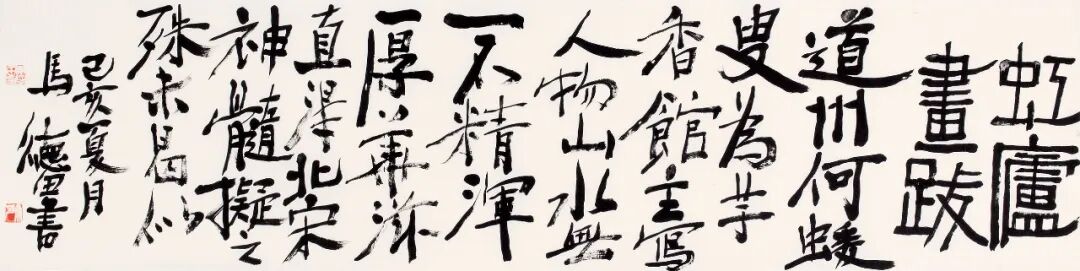 虹廬
畫跋
道州何蝯
叟為芋
香館主寫
人物山水無
一不精渾
厚華滋
直得北宋
神髓擬之
殊未易似
己亥夏月
馬德書